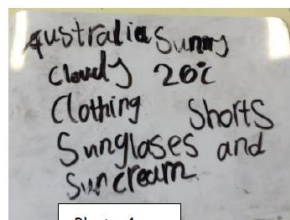 Australia Sunny
Cloudy 20°c
Clothing Shorts
Sunglases and
Suncream